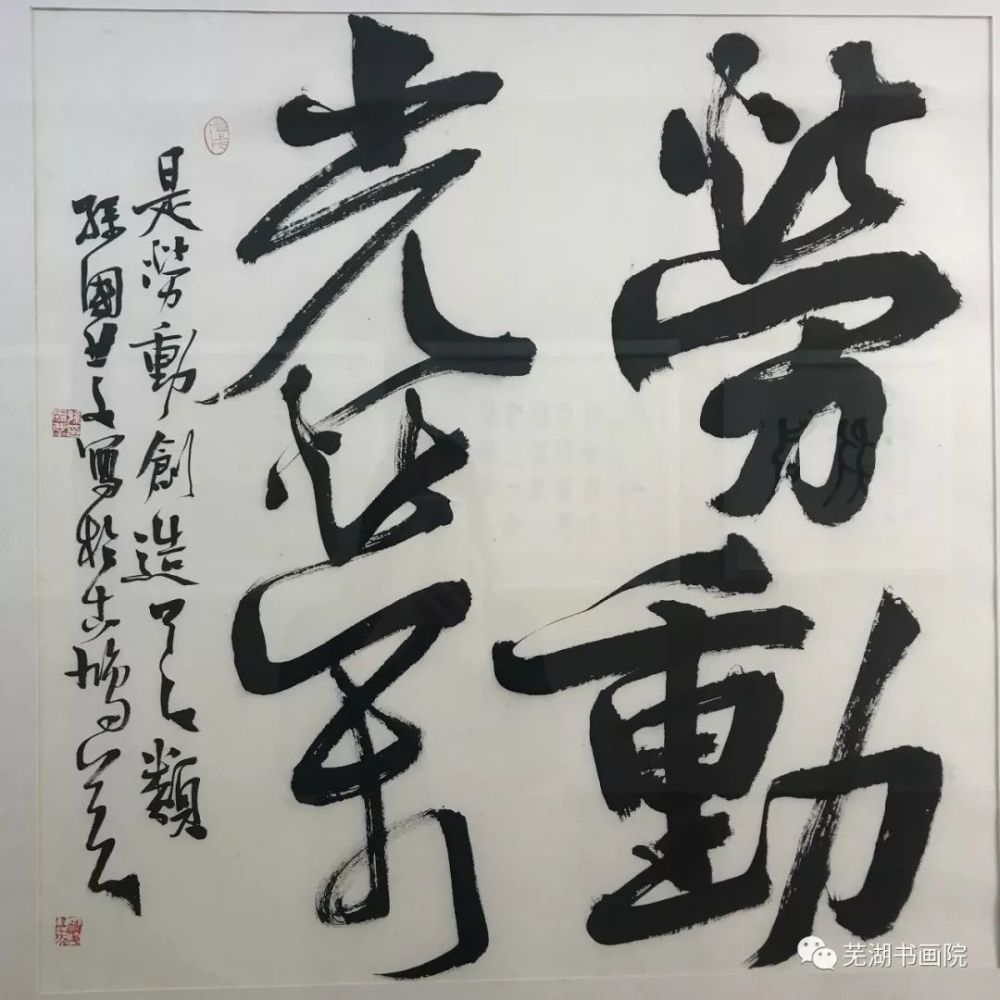 勞動
光榮
是勞動創造了人類
孫國
寫於古鳩
芜湖书画院